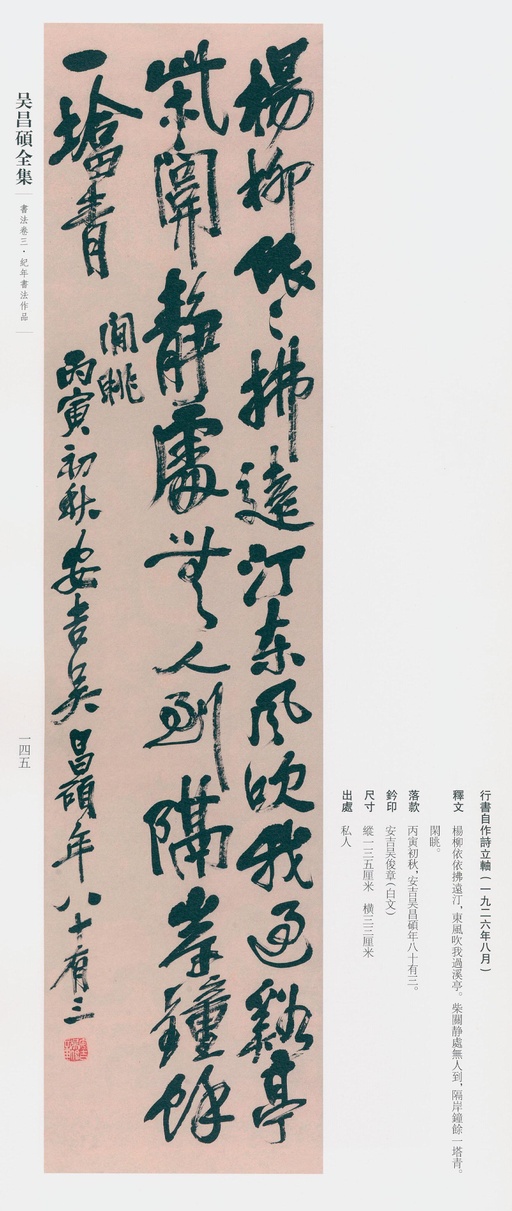 行書自作詩立軸(一九二六年八月)
釋文 楊柳依依拂遠汀,東風吹我過溪亭。柴關静處無人到,隔岸鐘餘一塔青。
閑眺。
落款 丙寅初秋,安吉吴昌碩年八十有三。
鈐印 安吉吴俊章(白文)
尺寸 縱一三五厘米 横三三厘米
出處 私人
楊柳依〻拂遠汀東風吹我過谿亭
柴關静處無人到隔岸鐘餘
一塔青
閒眺
丙寅初秋安吉吴昌碩年八十有三
吴昌碩全集
書法卷三·紀年書法作品
一四五